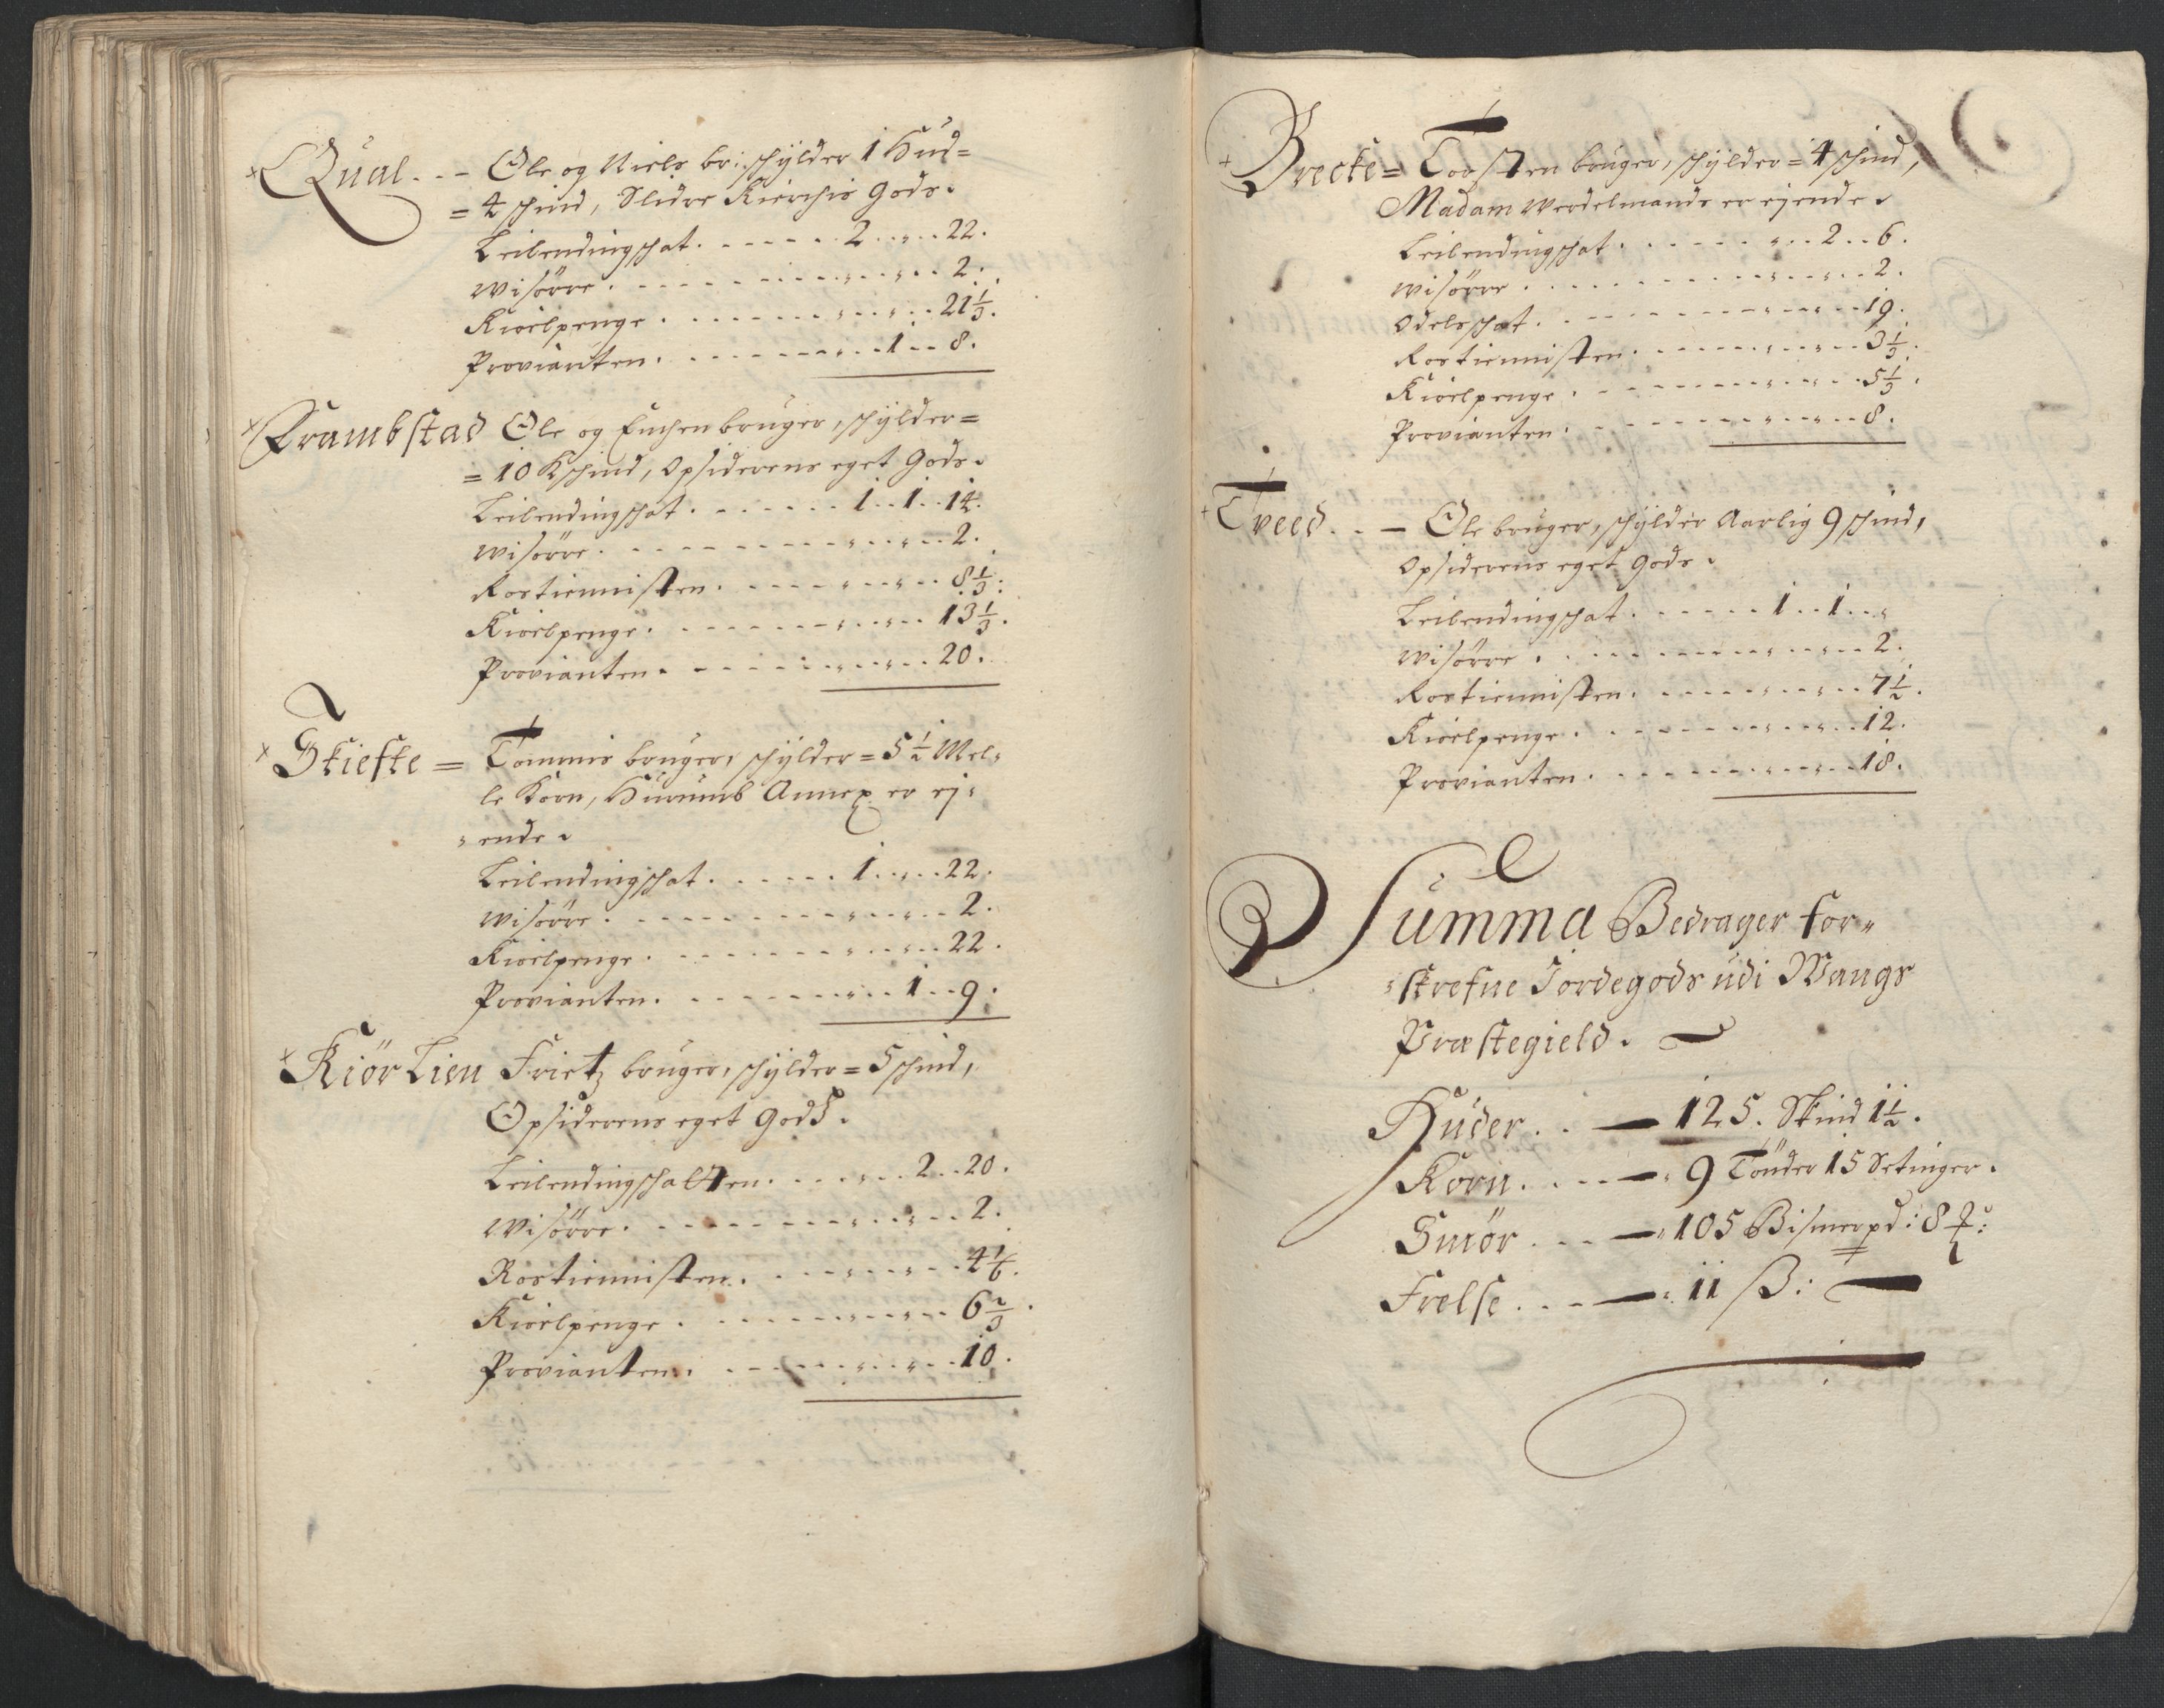 Qual. . – Ole og Niels br: schÿlder 1 Hud=
= 4 schind, Slidre Kierchis Gods.
Leilendingschat. . . . . . 2 . . „ . . 22.
Wisörre. . . . . . . . „ . . „ . . 2.
Kioelpenge. . . . . . . „ . . „ . . 21 1/3.
Provianten. . . . . . . „ . . 1 . . 8.
Frambstad Ole og Enchen bruger, schÿlder=
= 10 Kschind, Opsiderens eget Gods.
Leilendingschat. . . . . . 1 . . 1 . . 14.
Wisörre. . . . . . . . „ . . „ . . 2.
Rostienisten. . . . . . „ . . „ . . 8 1/3.
Kioelpenge. . . . . . . „ . . „ . . 13 1/3.
Provianten. . . . . . . „ . . „ . . 20.
Skiefte = Tommis bruger, schÿlder = 5 1/2 Mel„
le Korn, Hurumb Annex er ej„
„ ende.
Leilendingschat. . . . . . 1 . . „ . . 22.
Wisörre. . . . . . . . „ . . „ . . 2.
Kioelpenge. . . . . . . „ . . „ . . 22.
Provianten. . . . . . . „ . . 1 . . 9.
Kiör Lien Frietz bruger, schÿlder = 5 schind,
Opsiderens eget Gods.
Leilendingschatten. . . . „ . . 2 . . 20.
Wisörre. . . . . . . . „ . . „ . . 2.
Rostienisten. . . . . . „ . . „ . . 4 1/6.
Kioelpenge. . . . . . . „ . . „ . . 6 2/3.
Provianten. . . . . . . „ . . „ . . 10.
Brecke = Torsten bruger, schÿlder = 4 schind,
Madam Werdelmands er ejende.
Leilendingschat. . . . . . „ . . 2 . . 6.
Wisörre. . . . . . . . „ . . „ . . 2.
Odelsschat. . . . . . . „ . . „ . . 19.
Rostienisten. . . . . . „ . . „ . . 3 1/3.
Kioelpenge. . . . . . . „ . . „ . . 5 1/3.
Provianten. . . . . . . „ . . „ . . 8.
Tveed. . – Ole bruger, schÿlder Aarlig 9 schind,
Opsiderens eget Gods.
Leilendingschat. . . . . . 1 . . 1 . . „
Wisörre. . . . . . . . „ . . „ . . 2.
Rostienisten. . . . . . „ . . „ . . 7 1/2.
Kioelpenge. . . . . . . „ . . „ . . 12.
Provianten. . . . . . . „ . . „ . . 18.
Summa Bedrager for„
„skrefne Jordegods udi Wangs
Præstegield.
Huder. . — 125. Skind 1 1/2.
Korn. . . — „ 9 Tönder 15 Setinger.
Smör. . . — „ 105 Bismerpd: 8
Frelse. . . — „ 11 ß: